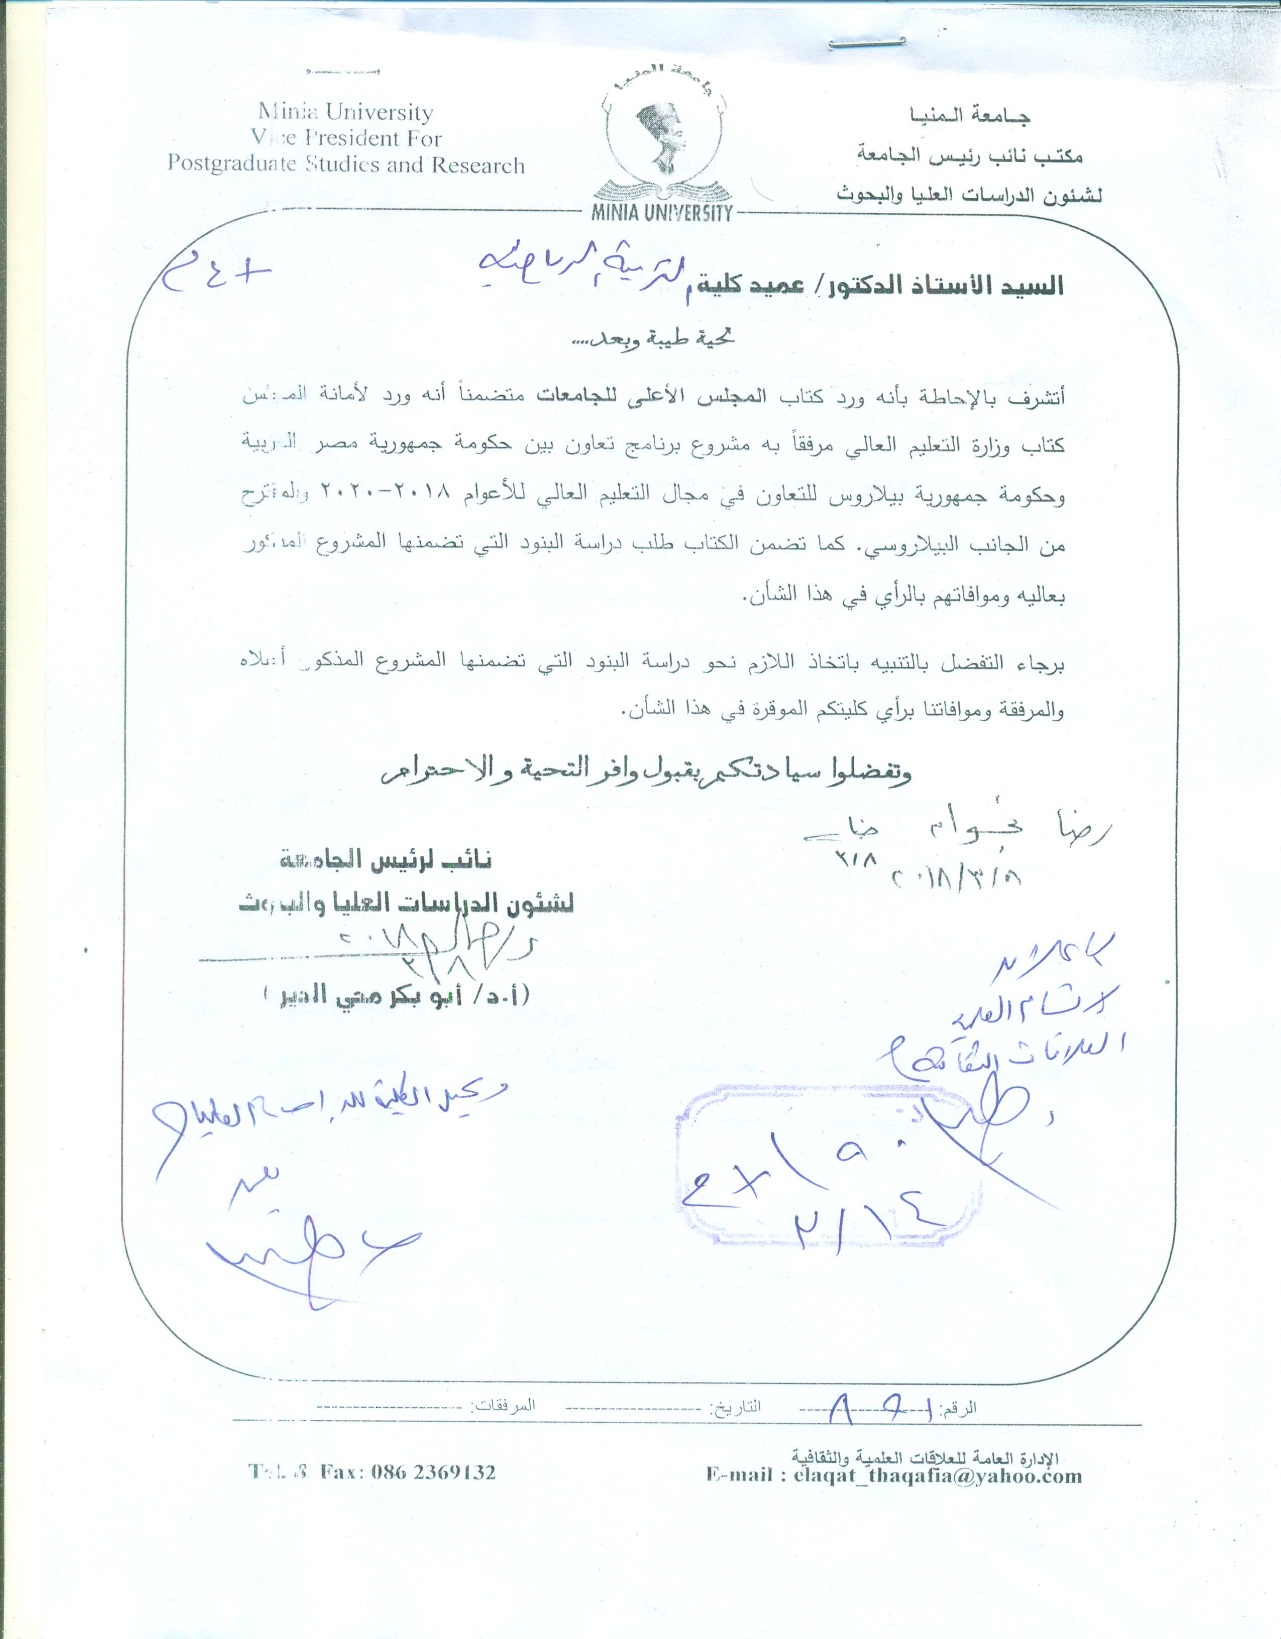 Minia University
Vice President For
Postgraduate Studies and Research
جامعة المنيا
MINIA UNIVERSITY
جامعة المنيا
مكتب نائب رئيس الجامعة
لشئون الدراسات العليا والبحوث
السيد الأستاذ الدكتور/ عميد كلية التربية الرياضية
تحية طيبة وبعد....
أتشرف بالإحاطة بأنه ورد كتاب المجلس الأعلى للجامعات متضمناً أنه ورد لأمانة المجلس
كتاب وزارة التعليم العالي مرفقاً به مشروع برنامج تعاون بين حكومة جمهورية مصر العربية
وحكومة جمهورية بيلاروس للتعاون في مجال التعليم العالي للأعوام ٢٠١٨-٢٠٢٠ والمقترح
من الجانب البيلاروسي. كما تضمن الكتاب طلب دراسة البنود التي تضمنها المشروع المذكور
بعاليه وموافاتهم بالرأي في هذا الشأن.
برجاء التفضل بالتنبيه باتخاذ اللازم نحو دراسة البنود التي تضمنها المشروع المذكور أعلاه
والمرفقة وموافاتنا برأي كليتكم الموقرة في هذا الشأن.
وتفضلوا سيادتكم بقبول وافر التحية والاحترام
رضا
٣/٨
٢٠١٨/٣/٨
نائب لرئيس الجامعة
لشئون الدراسات العليا والبحوث
٢٠١٨
٣/٨
(أ.د/ أبو بكر محي الدين)
الأقسام العلمية
العلاقات الثقافية
وكيل الكلية للدراسات العليا
٣/١٤
الرقم: ٨٩١ التاريخ: المرفقات:
الإدارة العامة للعلاقات العلمية والثقافية
E-mail : elaqat_thaqafia@yahoo.com
Tel. & Fax: 086 2369132